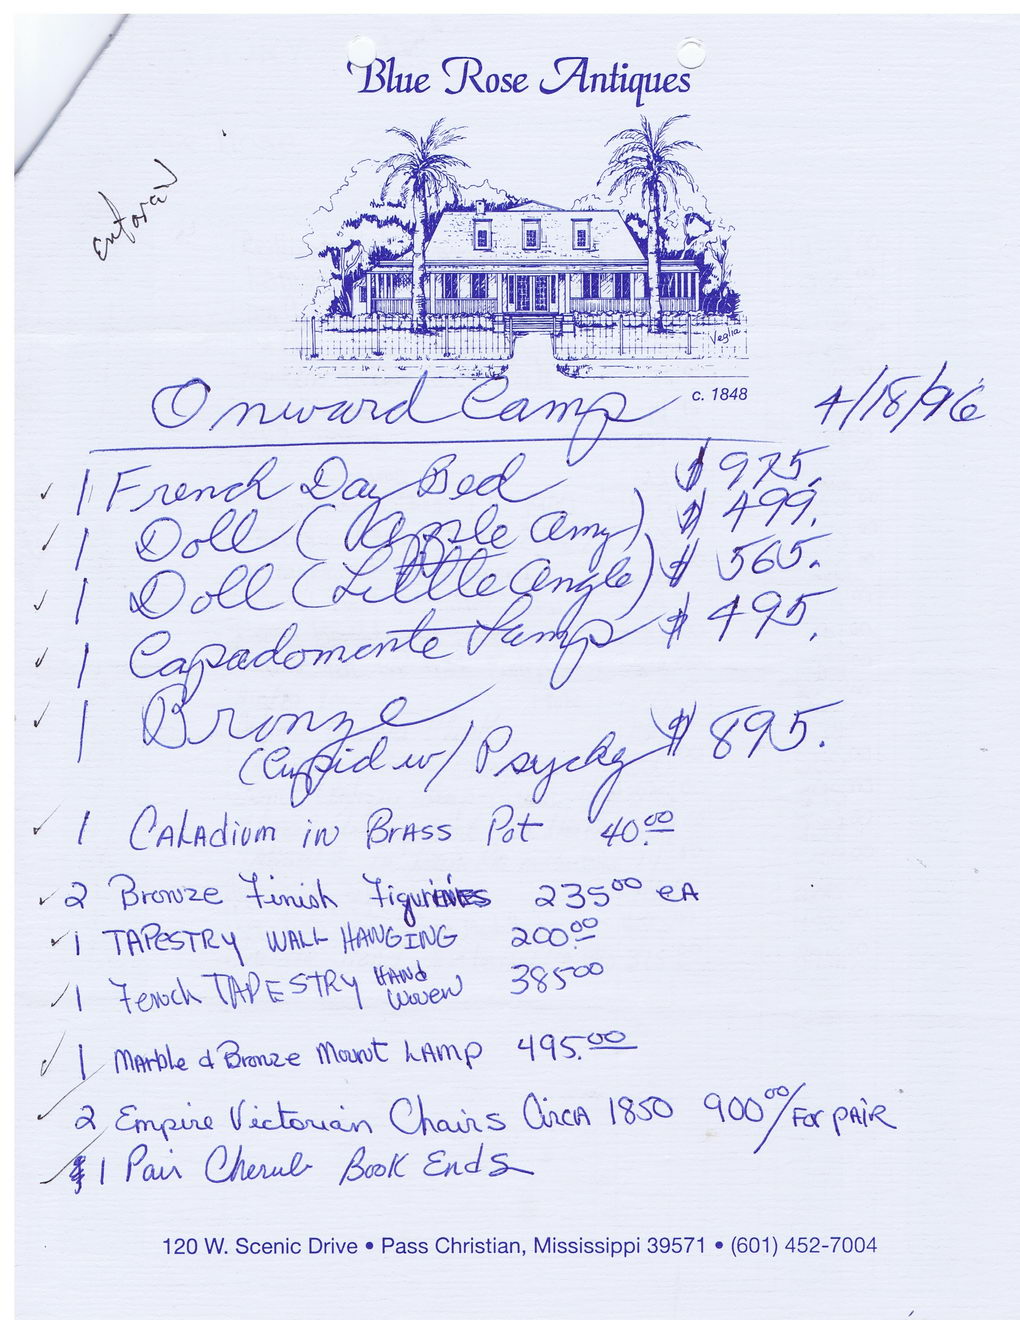 Blue Rose Antiques
Veglia
c. 1848
Onward Camp 4/18/96
1 French Day Bed $975.
1 Doll (Apple Amy) $499.
1 Doll (Little Angle) $565.
1 Capadomonte Lamp $495.
1 Bronze
(Cupid w/ Psycky $895.
1 Caladium in Brass Pot 40.00
2 Bronze Finish Figurines 235 00 eA
1 TAPESTRY WALL HANGING 200.00
1 French TAPESTRY HANd Woven 385 00
1 Marble & Bronze Mount LAMP 495.00
2 Empire Victorian Chairs Circa 1850 900 00/For PAIR
1 Pair Cherub Book Ends
120 W. Scenic Drive • Pass Christian, Mississippi 39571 • (601) 452-7004